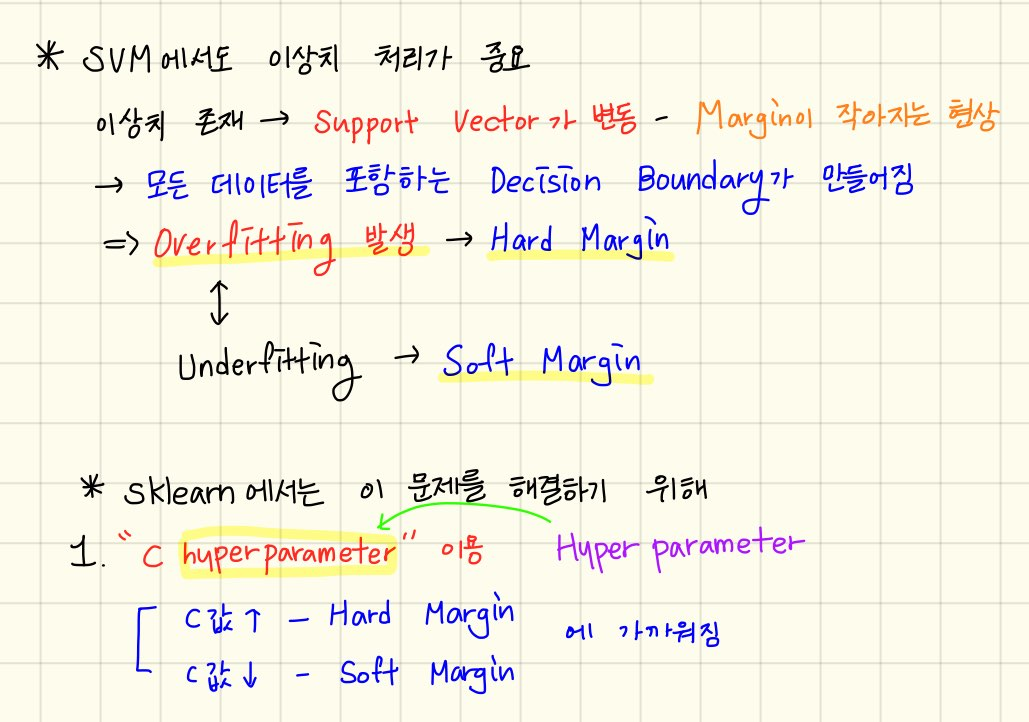 * SVM에서도 이상치 처리가 중요
이상치 존재 → Support Vector가 변동 - Margin이 작아지는 현상
→ 모든 데이터를 포함하는 Decision Boundary가 만들어짐
=> Overfitting 발생 → Hard Margin
↕
Underfitting → Soft Margin
* sklearn에서는 이 문제를 해결하기 위해
1. "C hyperparameter" 이용 Hyper parameter
C값↑ - Hard Margin
에 가까워짐
C값↓ - Soft Margin